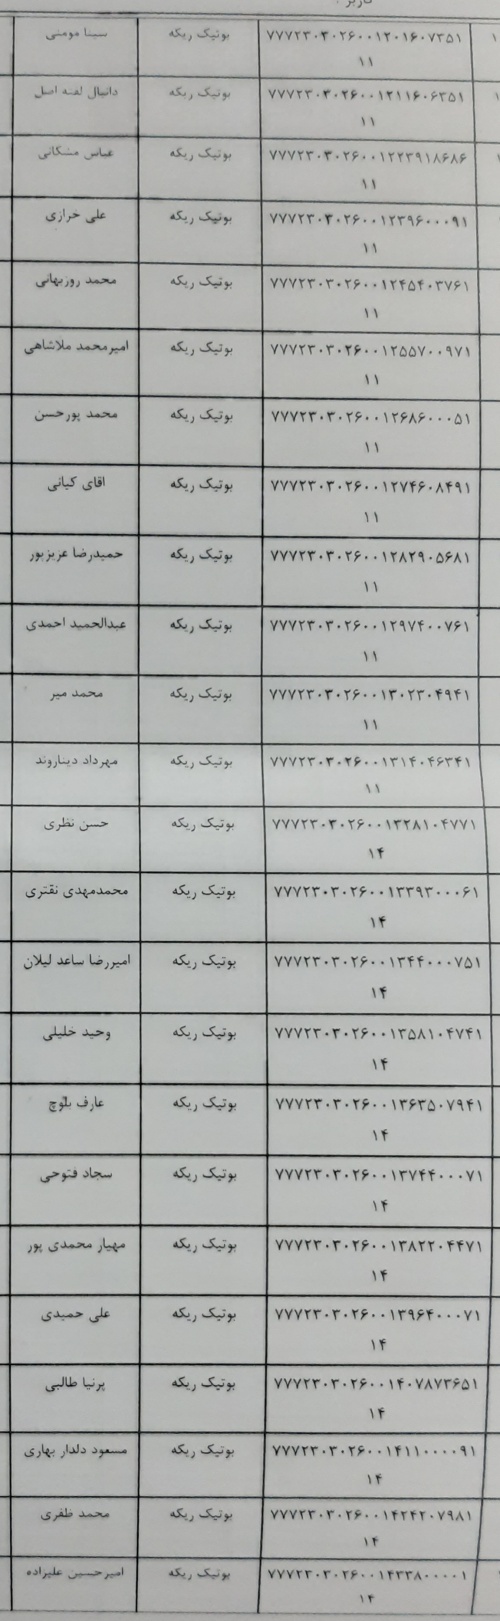 ۷۷۷۲۳۰۳۰۲۶۰۰۱۲۰۱۶۰۷۳۵۱ بوتیک ریکه سینا مومنی
۱۱
۷۷۷۲۳۰۳۰۲۶۰۰۱۲۱۱۶۰۶۳۵۱ بوتیک ریکه دانیال لفته اصل
۱۱
۷۷۷۲۳۰۳۰۲۶۰۰۱۲۲۳۹۱۸۶۸۶ بوتیک ریکه عباس مشکانی
۱۱
۷۷۷۲۳۰۳۰۲۶۰۰۱۲۳۹۶۰۰۰۹۱ بوتیک ریکه علی خرازی
۱۱
۷۷۷۲۳۰۳۰۲۶۰۰۱۲۴۵۴۰۳۷۶۱ بوتیک ریکه محمد روزبهانی
۱۱
۷۷۷۲۳۰۳۰۲۶۰۰۱۲۵۵۷۰۰۹۷۱ بوتیک ریکه امیرمحمد ملاشاهی
۱۱
۷۷۷۲۳۰۳۰۲۶۰۰۱۲۶۸۶۰۰۰۵۱ بوتیک ریکه محمد پورحسن
۱۱
۷۷۷۲۳۰۳۰۲۶۰۰۱۲۷۴۶۰۸۴۹۱ بوتیک ریکه اقای کیانی
۱۱
۷۷۷۲۳۰۳۰۲۶۰۰۱۲۸۲۹۰۵۶۸۱ بوتیک ریکه حمیدرضا عزیزپور
۱۱
۷۷۷۲۳۰۳۰۲۶۰۰۱۲۹۷۴۰۰۷۶۱ بوتیک ریکه عبدالحمید احمدی
۱۱
۷۷۷۲۳۰۳۰۲۶۰۰۱۳۰۲۳۰۴۹۴۱ بوتیک ریکه محمد میر
۱۱
۷۷۷۲۳۰۳۰۲۶۰۰۱۳۱۴۰۴۶۳۴۱ بوتیک ریکه مهرداد دیناروند
۱۱
۷۷۷۲۳۰۳۰۲۶۰۰۱۳۲۸۱۰۴۷۷۱ بوتیک ریکه حسن نظری
۱۴
۷۷۷۲۳۰۳۰۲۶۰۰۱۳۳۹۳۰۰۰۶۱ بوتیک ریکه محمدمهدی نقتری
۱۴
۷۷۷۲۳۰۳۰۲۶۰۰۱۳۴۴۰۰۰۷۵۱ بوتیک ریکه امیررضا ساعد لیلان
۱۴
۷۷۷۲۳۰۳۰۲۶۰۰۱۳۵۸۱۰۴۷۴۱ بوتیک ریکه وحید خلیلی
۱۴
۷۷۷۲۳۰۳۰۲۶۰۰۱۳۶۳۵۰۷۹۴۱ بوتیک ریکه عارف بلوچ
۱۴
۷۷۷۲۳۰۳۰۲۶۰۰۱۳۷۴۴۰۰۰۷۱ بوتیک ریکه سجاد فتوحی
۱۴
۷۷۷۲۳۰۳۰۲۶۰۰۱۳۸۲۲۰۴۴۷۱ بوتیک ریکه مهیار محمدی پور
۱۴
۷۷۷۲۳۰۳۰۲۶۰۰۱۳۹۶۴۰۰۰۷۱ بوتیک ریکه علی حمیدی
۱۴
۷۷۷۲۳۰۳۰۲۶۰۰۱۴۰۷۸۷۳۶۵۱ بوتیک ریکه پرنیا طالبی
۱۴
۷۷۷۲۳۰۳۰۲۶۰۰۱۴۱۱۰۰۰۰۹۱ بوتیک ریکه مسعود دلدار بهاری
۱۴
۷۷۷۲۳۰۳۰۲۶۰۰۱۴۲۴۲۰۷۹۸۱ بوتیک ریکه محمد ظفری
۱۴
۷۷۷۲۳۰۳۰۲۶۰۰۱۴۳۳۸۰۰۰۰۱ بوتیک ریکه امیرحسین علیزاده
۱۴